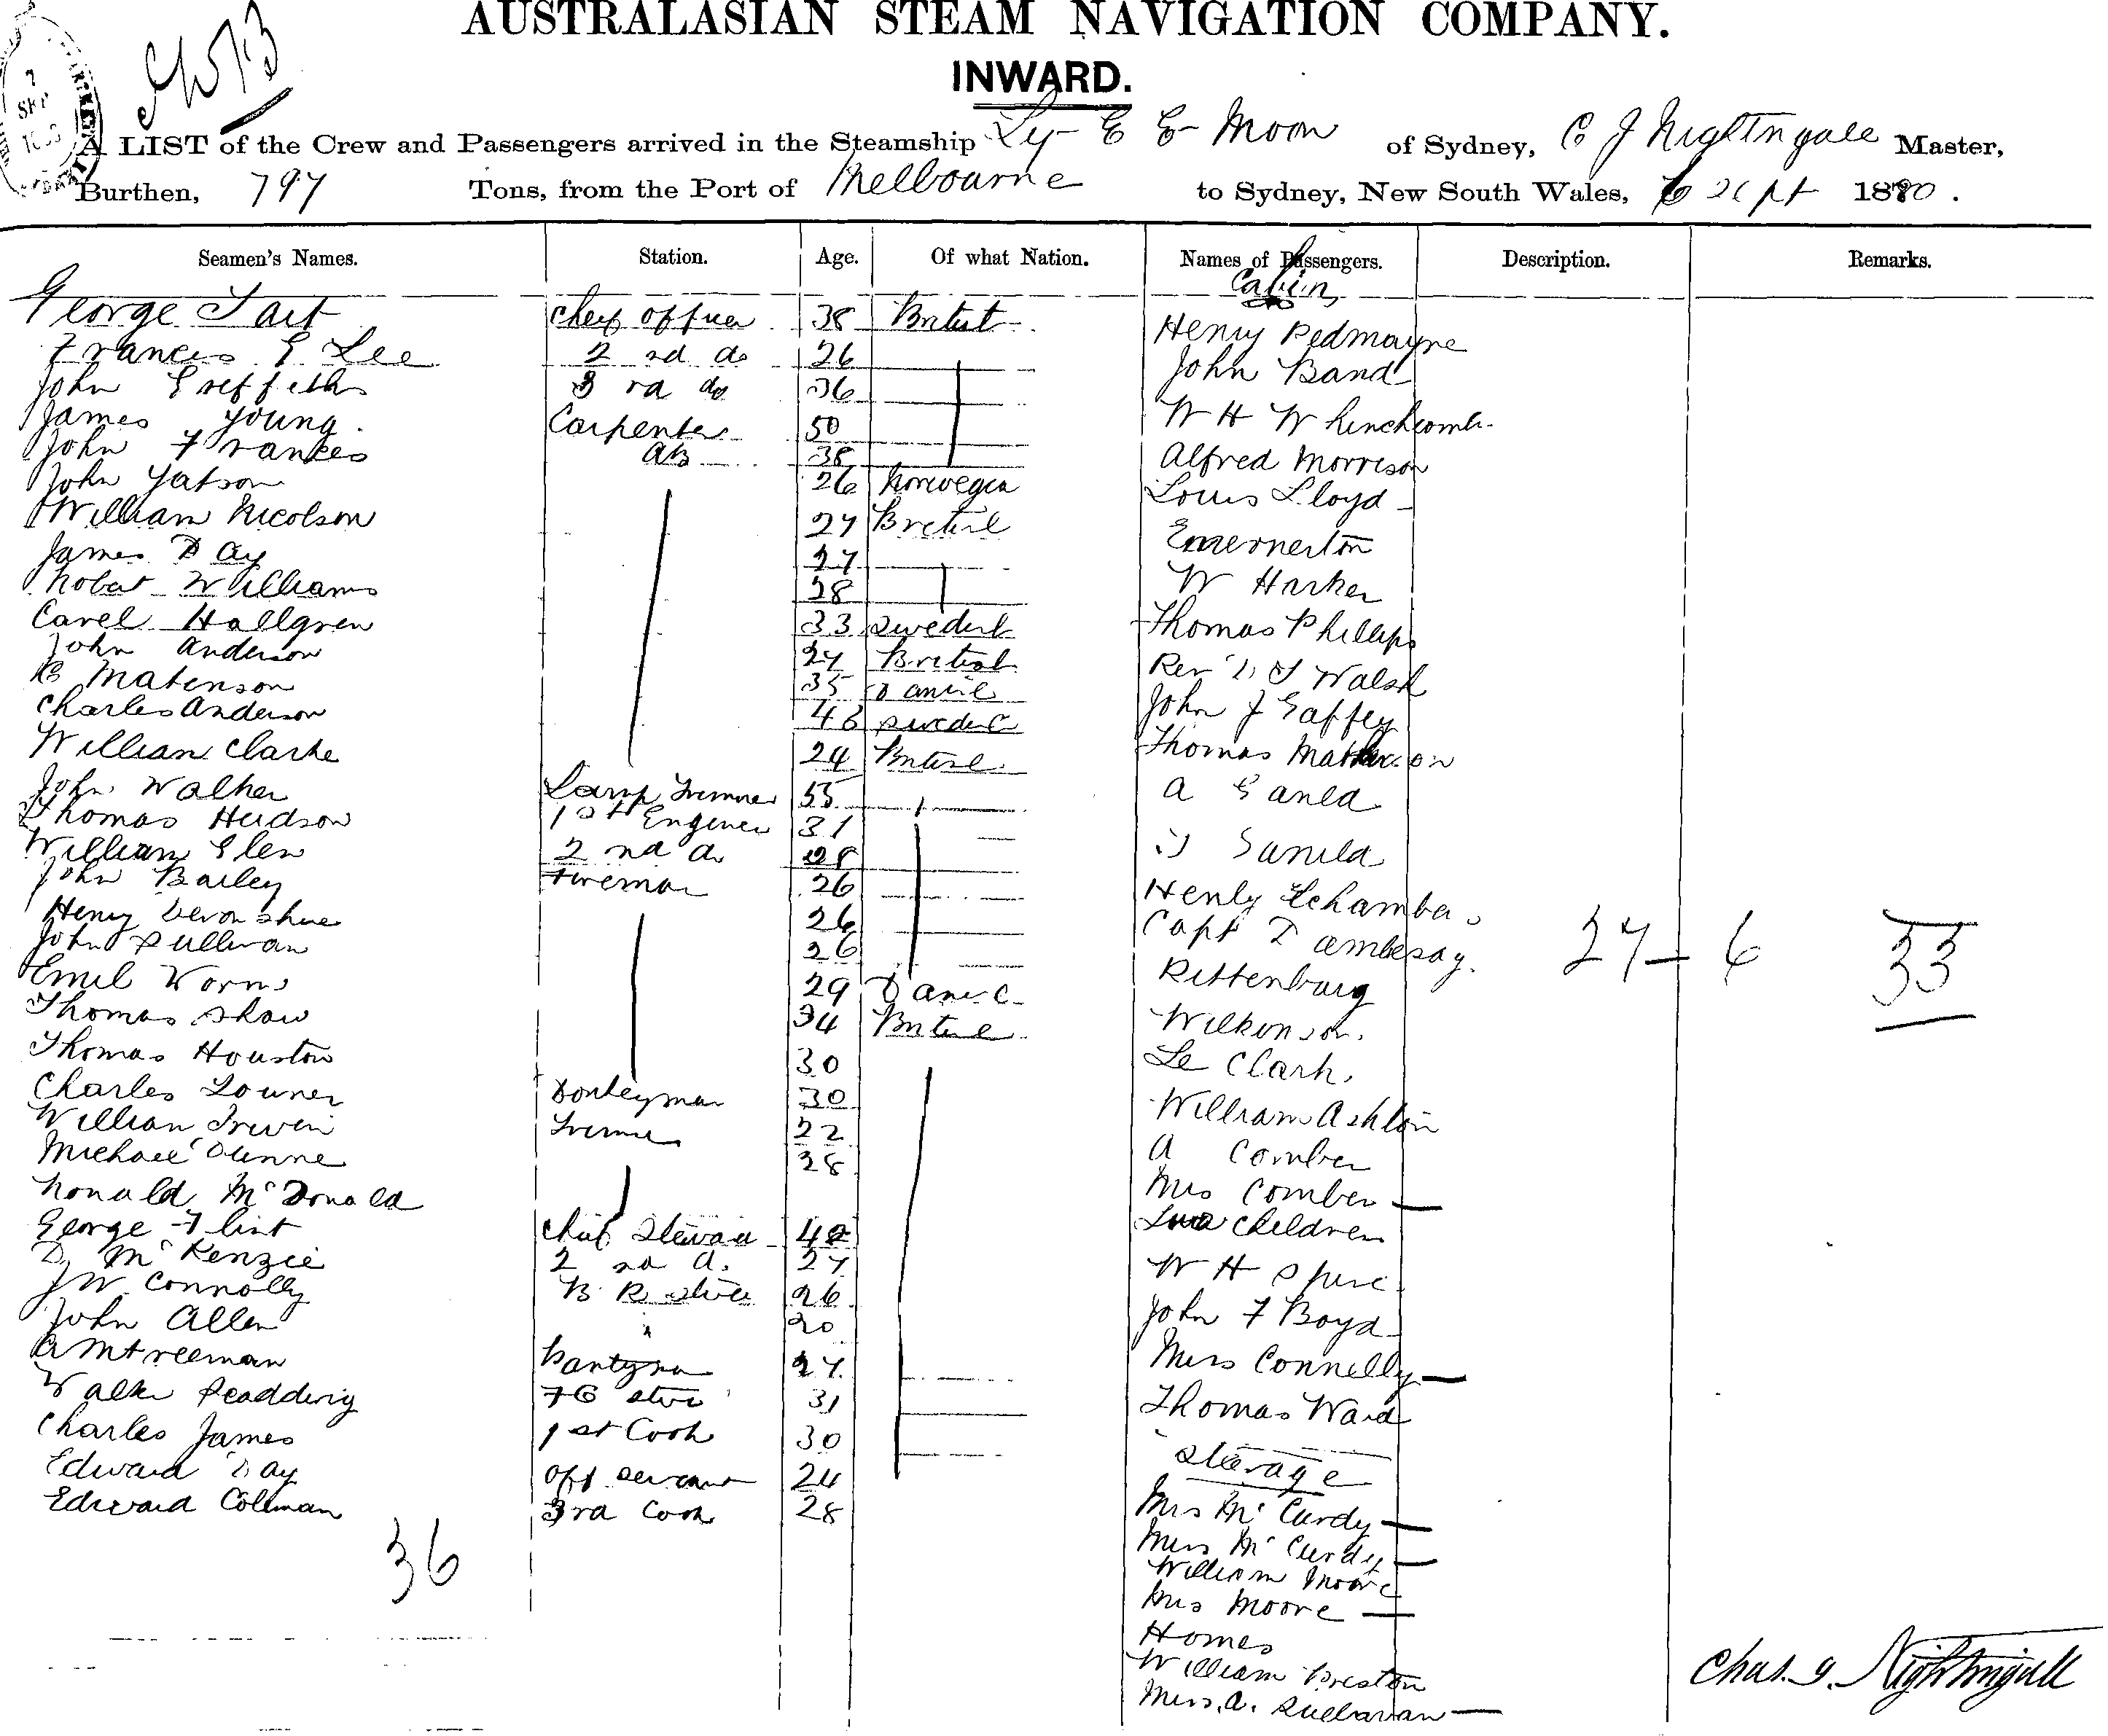 AUSTRALASIAN STEAM NAVIGATION COMPANY.
INWARD.
A LIST of the Crew and Passengers arrived in the Steamship Ly-E E-Moon of Sydney, C J Nightngale Master,
Burthen, 797 Tons, from the Port of Melbourne to Sydney, New South Wales, 6 Sept 1880.
Seamen's Names. Station. Age. Of what Nation. Names of Passengers. Description. Remarks.
Cabin
George Tait Chief officer 38 British Henry Redmayne
Francis G Lee 2nd do 26 John Band
John Griffiths 3rd do 36
James Young. Carpenter 50 W H W hinchcomb
John Frances AB 38 Alfred Morrison
John Yatson 26 Norwegia Louis Lloyd
William Nicolson 27 British
James Day 27 W Harker
Robert Williams 28 Thomas Phillips
Carel Hallgren 33 Swedish Rev D J Walsh
John Anderson 27 British John J Gaffey
Matenson 35 Danie Thomas
Charles Anderson 46 Swedi
William Clarke 24 British A Gauld
John Walker Lamp Trimmer 55
Thomas Hudson 1st Engineer 31
William Glen 2nd do 28
John Bailey Fireman 26 Henly
Henry Devonshire 26 Capt
John Sullivan 26 Rittenburg 27 + 6 33
Emil Worms 29 Danie
Thomas Shaw 34 British Wilkinson.
Thomas Houston 30 Le Clark.
Charles Lowner Donkeyman 30 William Ashton
William Irwin Trimmer 22 A Comber
Michael Dunne 28 Mrs Comber
Ronald McDonald Two Children
George Flint Chief Steward 42 W H
D McKenzie 2nd do 27 John F Boyd
J W Connolly B R Stew 26 Miss Connelly
John Allen 20 Thomas Ward
A M Freeman Pantryman 27
Walter Readding F C Stew 31
Charles James 1st Cook 30 Steerage
Edward Day Off Servant 24 Mrs McCurdy
Edward Coleman 3rd Cook 28 Miss McCurdy
36 William Moore
Mrs Moore
Homes
William Preston
Miss. A. Sullavan
Chas. J. Nightingall